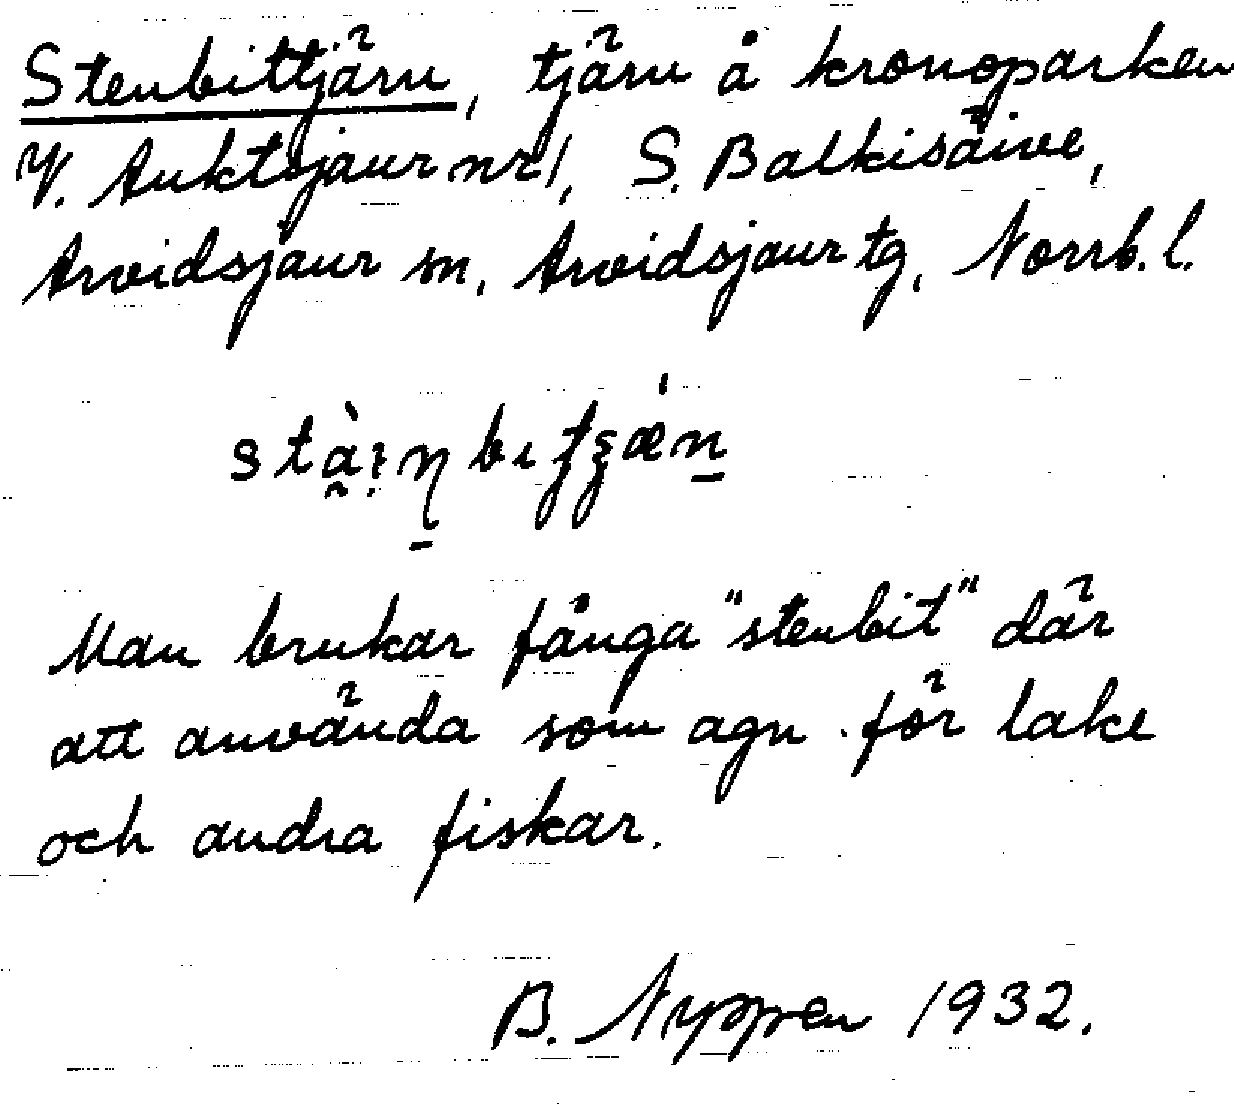 Stenbittjärn, tjärn å kronoparken
V. Auktsjaur nr 1, S. Balkisäive,
Arvidsjaur sn, Arvidsjaur tg, Norrb. l.
Man brukar fånga "stenbit" där
att använda som agn för lake
och andra fiskar.
B. Nyppen 1932.